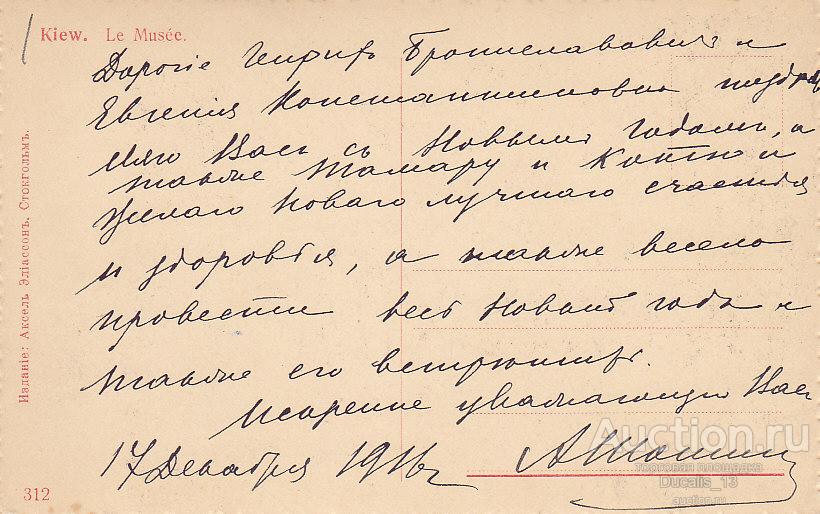 Kiew. Le Musée.
Дорогіе Брониславовичъ и
Евгенія Константиновна поздрав
ляю Васъ съ Новымъ Годомъ, а
также Тамару и Котю и
желаю новаго лучшаго счастія
и здоровія, а также весело
провести весь Новый годъ и
также его встрѣтить.
Искренне уважающій Васъ
17 Декабря 1916 г.
Изданіе: Аксель Эліассонъ, Стокгольмъ.
312
Auction.ru
торговая площадка
Ducalis_13
auction.ru